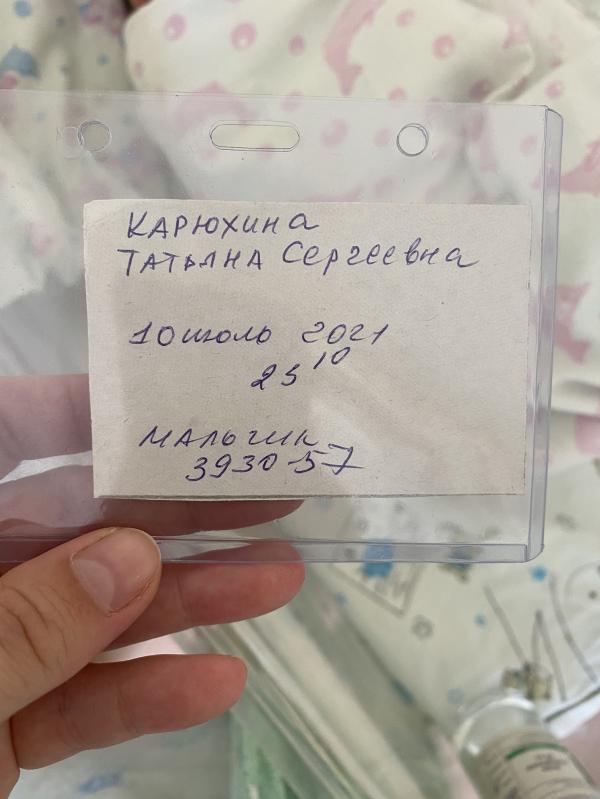 Карюхина
Татьяна Сергеевна
10 июль 2021
23 10
Мальчик
3930-57